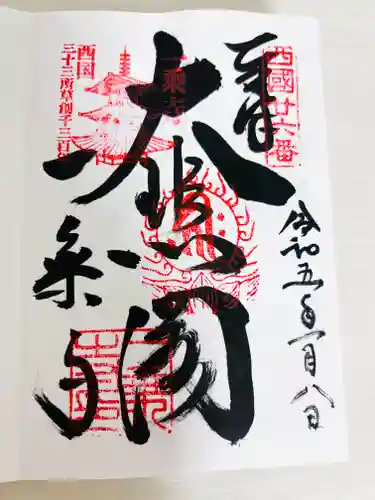 奉拝
西國廿六番
大悲閣
一乗寺
西国
三十三所草創千三百年
令和五年一月八日